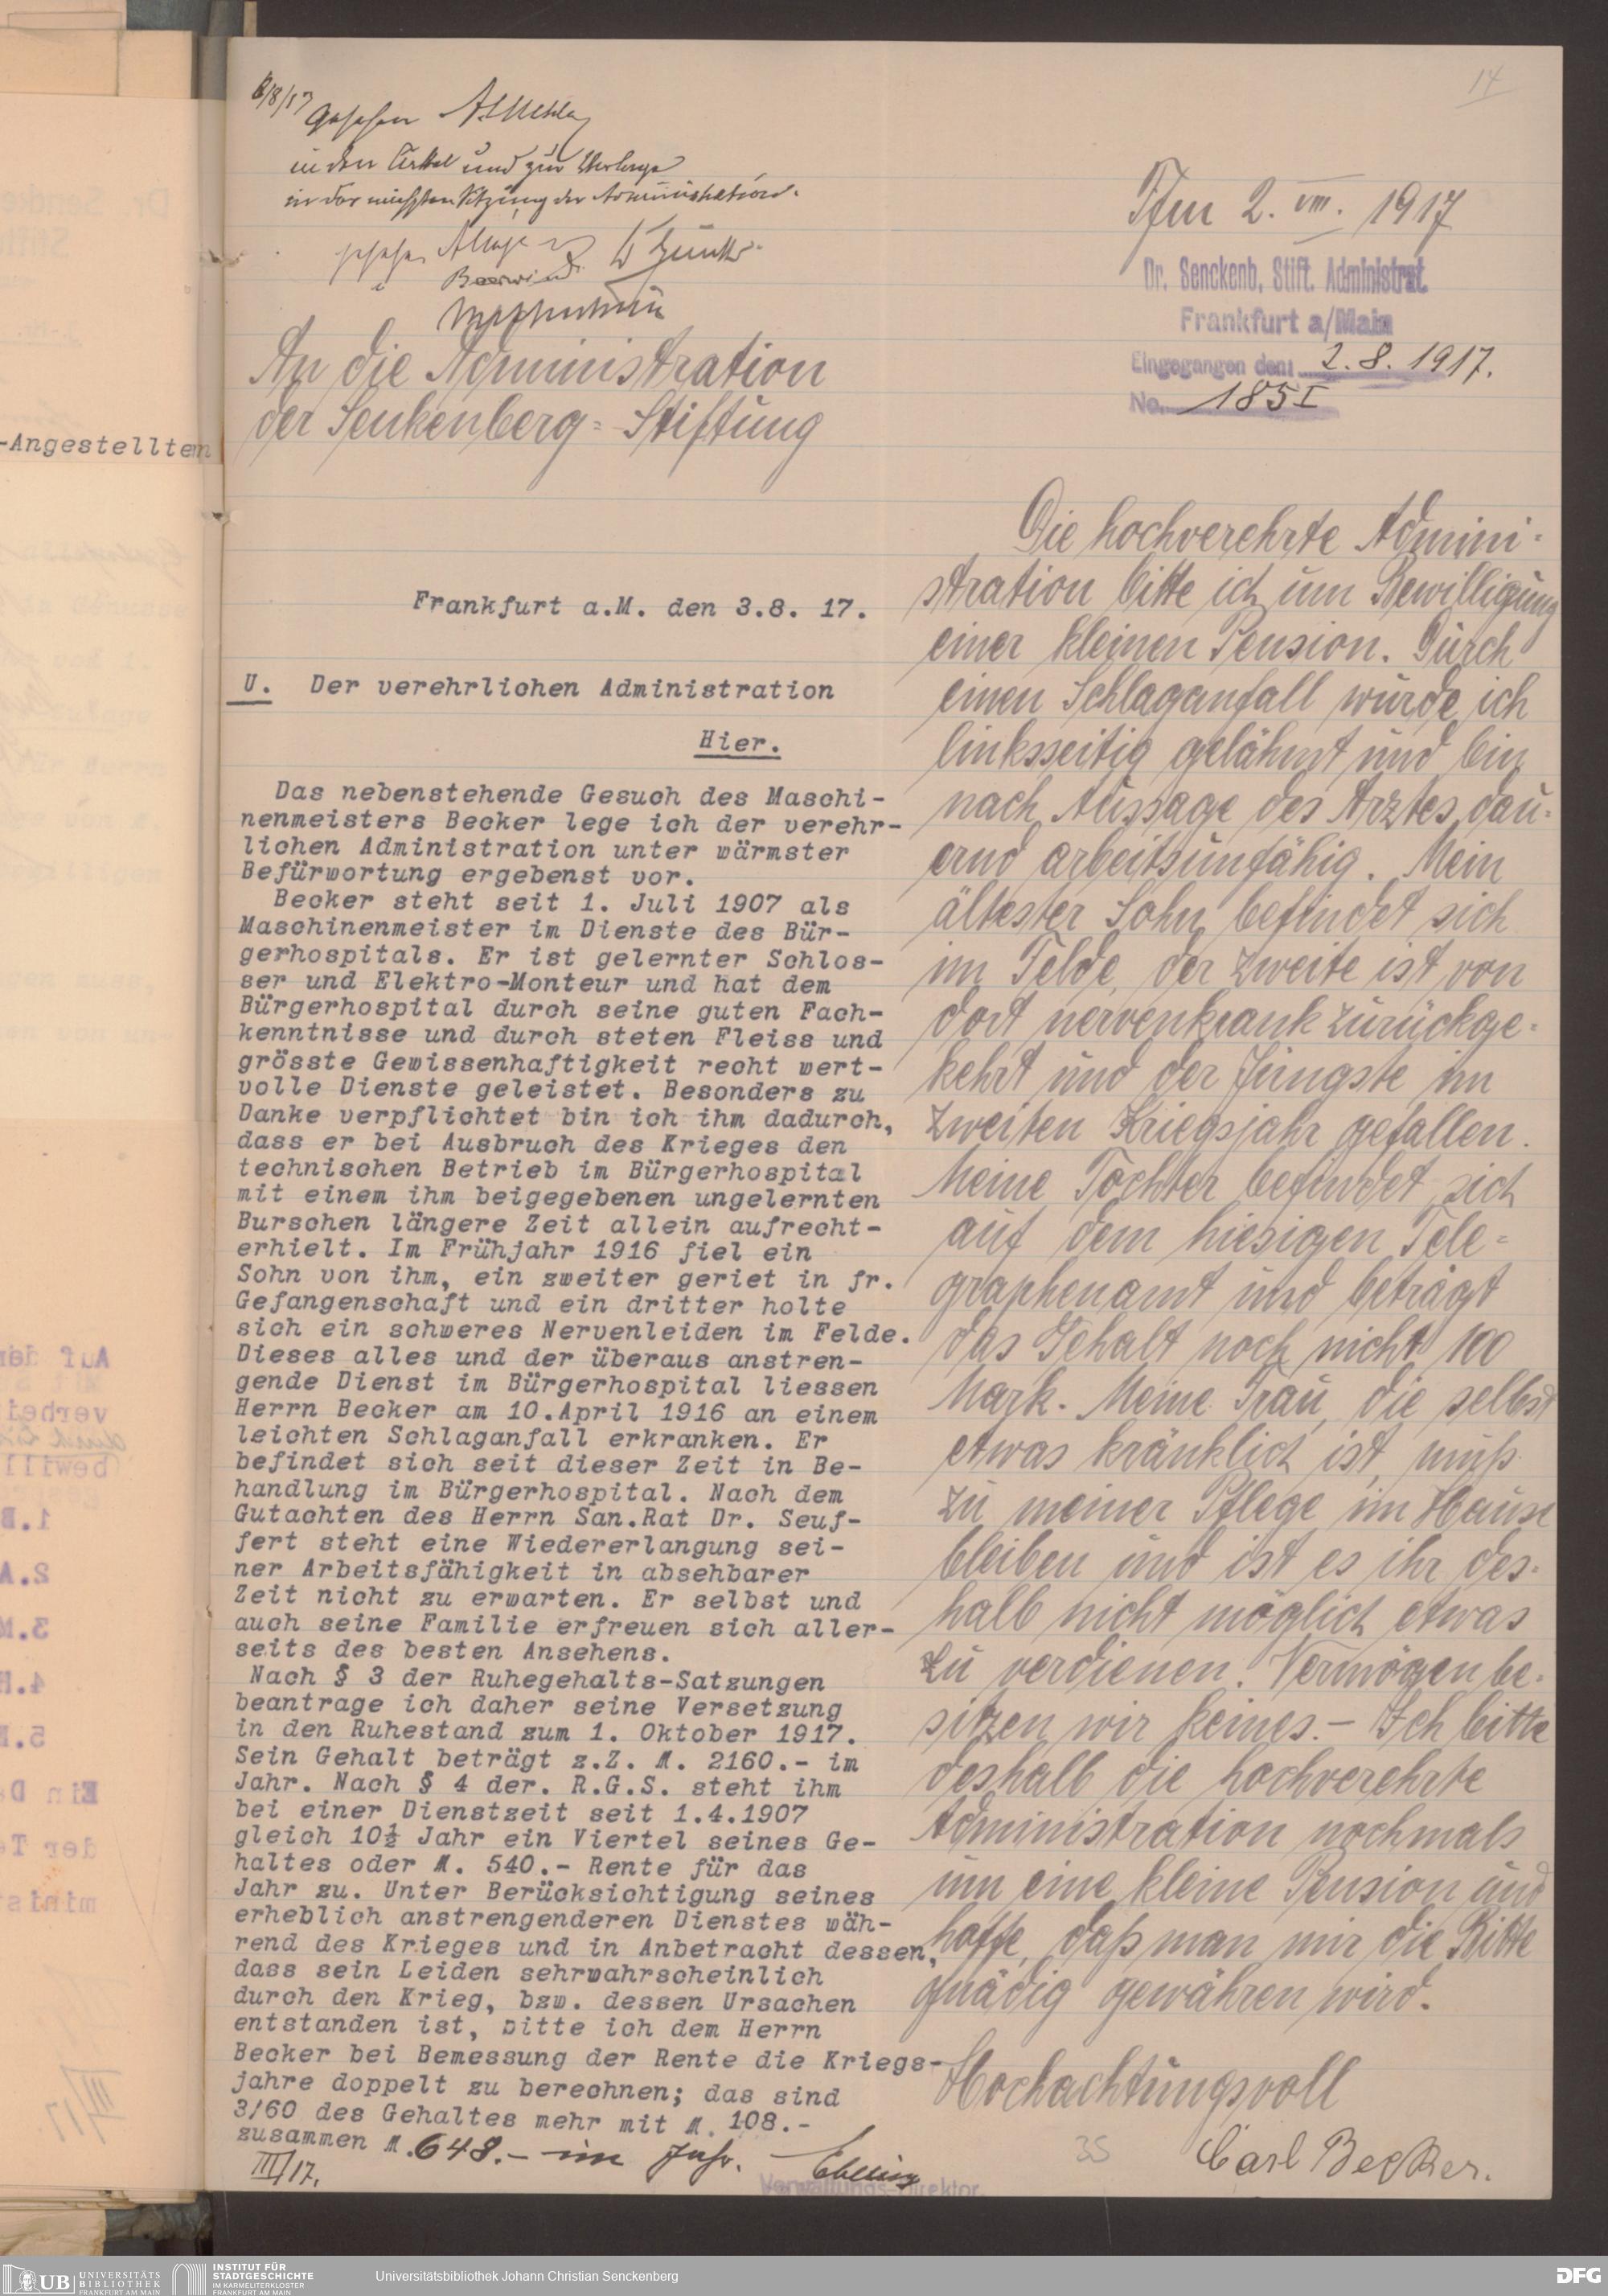 -Angestellten
14
6/8/17
gesehen
in den Cirkel und zur Vorlage
in der nächsten Sitzung der Administration.
Ffm 2. VIII. 1917
Dr. Senckenb. Stift. Administrat.
Frankfurt a/Main
Eingegangen den: 2.8.1917.
No. 185 I
An die Administration
der Senkenberg-Stiftung
Frankfurt a.M. den 3.8. 17.
U. Der verehrlichen Administration
Hier.
Das nebenstehende Gesuch des Maschi-
nenmeisters Becker lege ich der verehr-
lichen Administration unter wärmster
Befürwortung ergebenst vor.
Becker steht seit 1. Juli 1907 als
Maschinenmeister im Dienste des Bür-
gerhospitals. Er ist gelernter Schlos-
ser und Elektro-Monteur und hat dem
Bürgerhospital durch seine guten Fach-
kenntnisse und durch steten Fleiss und
grösste Gewissenhaftigkeit recht wert-
volle Dienste geleistet. Besonders zu
Danke verpflichtet bin ich ihm dadurch,
dass er bei Ausbruch des Krieges den
technischen Betrieb im Bürgerhospital
mit einem ihm beigegebenen ungelernten
Burschen längere Zeit allein aufrecht-
erhielt. Im Frühjahr 1916 fiel ein
Sohn von ihm, ein zweiter geriet in fr.
Gefangenschaft und ein dritter holte
sich ein schweres Nervenleiden im Felde.
Dieses alles und der überaus anstren-
gende Dienst im Bürgerhospital liessen
Herrn Becker am 10.April 1916 an einem
leichten Schlaganfall erkranken. Er
befindet sich seit dieser Zeit in Be-
handlung im Bürgerhospital. Nach dem
Gutachten des Herrn San.Rat Dr. Seuf-
fert steht eine Wiedererlangung sei-
ner Arbeitsfähigkeit in absehbarer
Zeit nicht zu erwarten. Er selbst und
auch seine Familie erfreuen sich aller-
seits des besten Ansehens.
Nach § 3 der Ruhegehalts-Satzungen
beantrage ich daher seine Versetzung
in den Ruhestand zum 1. Oktober 1917.
Sein Gehalt beträgt z.Z. M. 2160.- im
Jahr. Nach § 4 der. R.G.S. steht ihm
bei einer Dienstzeit seit 1.4.1907
gleich 10½ Jahr ein Viertel seines Ge-
haltes oder M. 540.- Rente für das
Jahr zu. Unter Berücksichtigung seines
erheblich anstrengenderen Dienstes wäh-
rend des Krieges und in Anbetracht dessen,
dass sein Leiden sehrwahrscheinlich
durch den Krieg, bzw. dessen Ursachen
entstanden ist, bitte ich dem Herrn
Becker bei Bemessung der Rente die Kriegs-
jahre doppelt zu berechnen; das sind
3/60 des Gehaltes mehr mit M. 108.-
zusammen M. 648.- im Jahr.
III/17.
Verwaltungs-Direktor.
Die hochverehrte Admini-
stration bitte ich um Bewilligung
einer kleinen Pension. Durch
einen Schlaganfall wurde ich
linksseitig gelähmt und bin
nach Aussage des Arztes dau-
ernd arbeitsunfähig. Mein
ältester Sohn befindet sich
im Felde, der zweite ist von
dort nervenkrank zurückge-
kehrt und der Jüngste im
zweiten Kriegsjahr gefallen.
Meine Tochter befindet sich
auf dem hiesigen Tele-
graphenamt und beträgt
das Gehalt noch nicht 100
Mark. Meine Frau, die selbst
etwas kränklich ist, muß
zu meiner Pflege im Hause
bleiben und ist es ihr des-
halb nicht möglich etwas
zu verdienen. Vermögen be-
sitzen wir keines. – Ich bitte
deshalb die hochverehrte
Administration nochmals
um eine kleine Pension und
hoffe, daß man mir die Bitte
gnädig gewähren wird.
Hochachtungsvoll
Carl Becker.
35
UB UNIVERSITÄTS
BIBLIOTHEK
FRANKFURT AM MAIN
INSTITUT FÜR
STADTGESCHICHTE
IM KARMELITERKLOSTER
FRANKFURT AM MAIN
Universitätsbibliothek Johann Christian Senckenberg
DFG